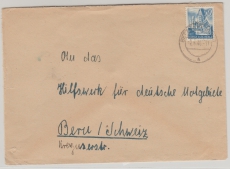 An das
Hilfswerk für deutsche Notgebiete
Bern / Schweiz